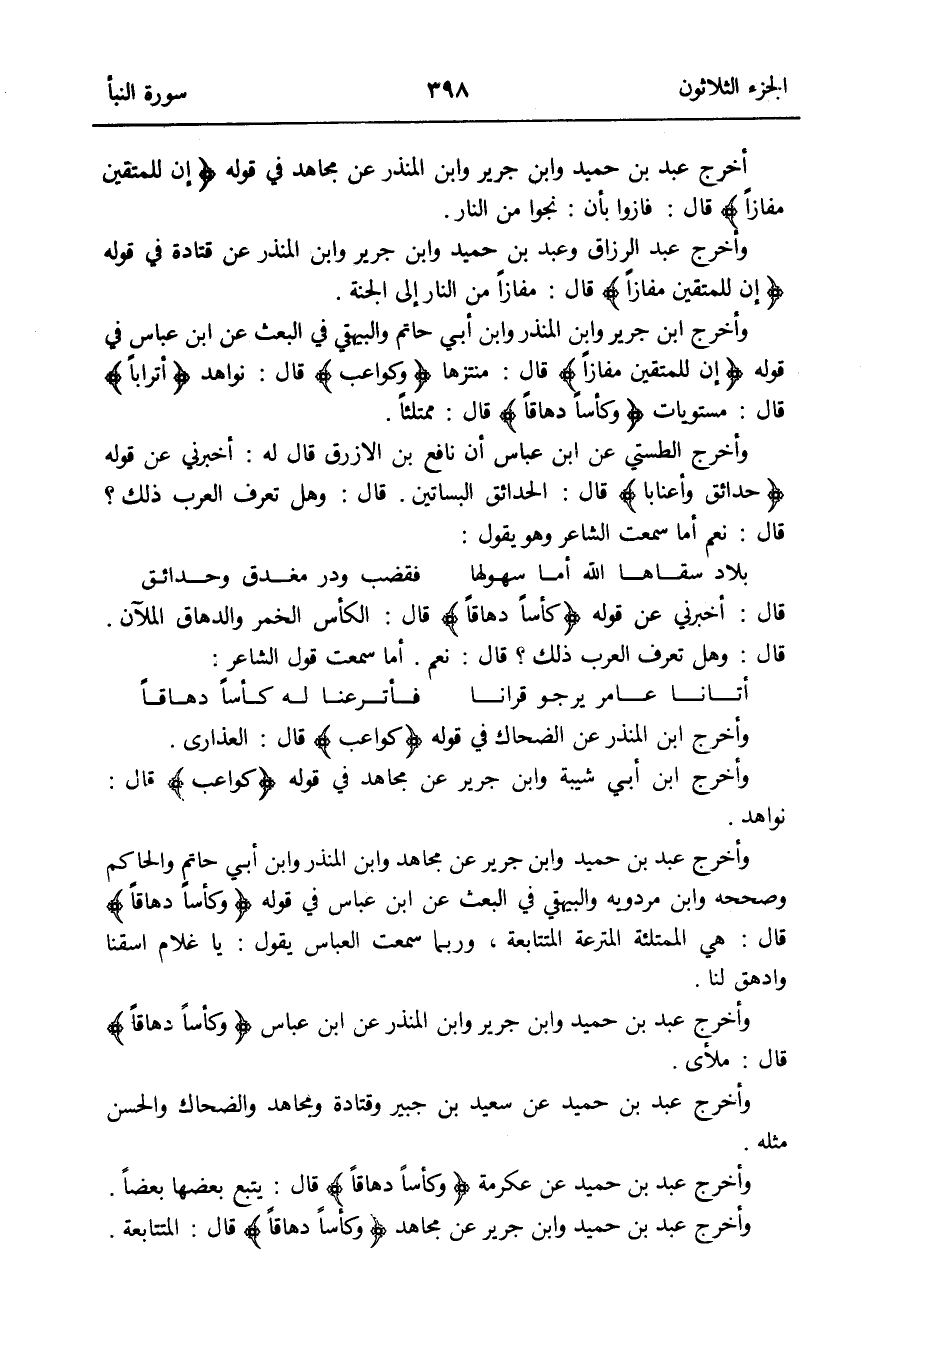 الجزء الثلاثون ٣٩٨ سورة النبأ
أخرج عبد بن حميد وابن جرير وابن المنذر عن مجاهد في قوله ﴿ إن للمتقين
مفازاً ﴾ قال : فازوا بأن : نجوا من النار .
وأخرج عبد الرزاق وعبد بن حميد وابن جرير وابن المنذر عن قتادة في قوله
﴿ إن للمتقين مفازاً ﴾ قال : مفازاً من النار إلى الجنة .
وأخرج ابن جرير وابن المنذر وابن أبي حاتم والبيهقي في البعث عن ابن عباس في
قوله ﴿ إن للمتقين مفازاً ﴾ قال : منتزها ﴿ وكواعب ﴾ قال : نواهد ﴿ أتراباً ﴾
قال : مستويات ﴿ وكأساً دهاقاً ﴾ قال : ممتلئاً .
وأخرج الطستي عن ابن عباس أن نافع بن الازرق قال له : أخبرني عن قوله
﴿ حدائق وأعنابا ﴾ قال : الحدائق البساتين . قال : وهل تعرف العرب ذلك ؟
قال : نعم أما سمعت الشاعر وهو يقول :
بلاد سقاها الله أما سهولها فقضب ودر مغدق وحدائق
قال : أخبرني عن قوله ﴿ كأساً دهاقاً ﴾ قال : الكأس الخمر والدهاق الملآن .
قال : وهل تعرف العرب ذلك ؟ قال : نعم . أما سمعت قول الشاعر :
أتانا عامر يرجو قرانا فأترعنا له كأساً دهاقاً
وأخرج ابن المنذر عن الضحاك في قوله ﴿ كواعب ﴾ قال : العذارى .
وأخرج ابن أبي شيبة وابن جرير عن مجاهد في قوله ﴿ كواعب ﴾ قال :
نواهد .
وأخرج عبد بن حميد وابن جرير عن مجاهد وابن المنذر وابن أبي حاتم والحاكم
وصححه وابن مردويه والبيهقي في البعث عن ابن عباس في قوله ﴿ وكأساً دهاقاً ﴾
قال : هي الممتلئة المترعة المتتابعة ، وربما سمعت العباس يقول : يا غلام اسقنا
وادهق لنا .
وأخرج عبد بن حميد وابن جرير وابن المنذر عن ابن عباس ﴿ وكأساً دهاقاً ﴾
قال : ملأى .
وأخرج عبد بن حميد عن سعيد بن جبير وقتادة ومجاهد والضحاك والحسن
مثله .
وأخرج عبد بن حميد عن عكرمة ﴿ وكأساً دهاقاً ﴾ قال : يتبع بعضها بعضاً .
وأخرج عبد بن حميد وابن جرير عن مجاهد ﴿ وكأساً دهاقاً ﴾ قال : المتتابعة .